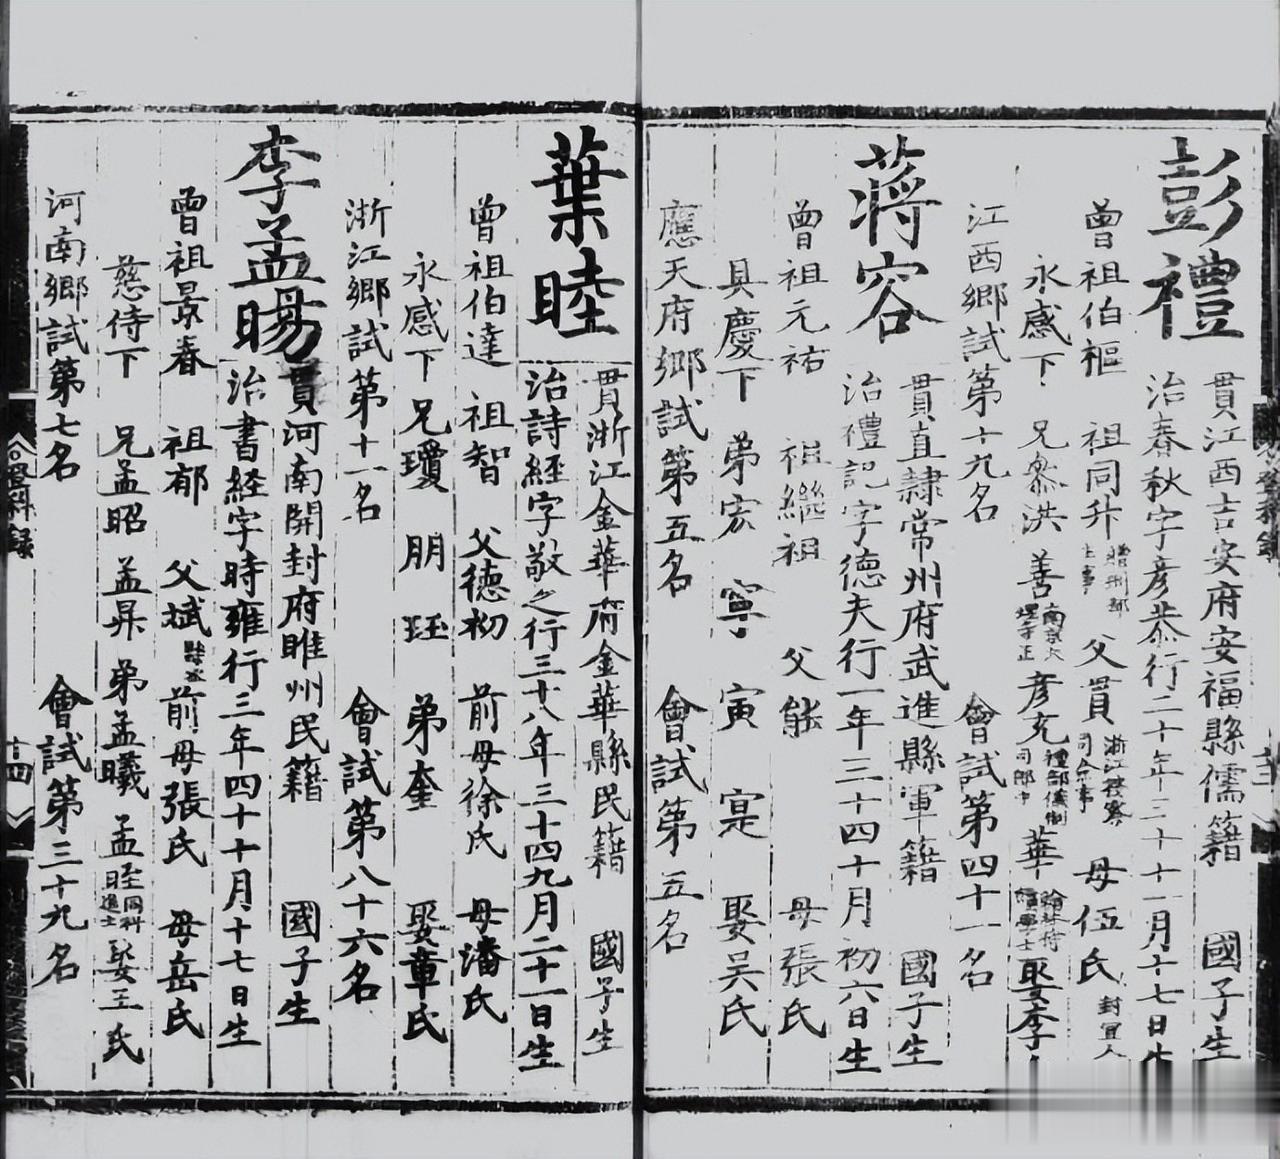 彭禮
貫江西吉安府安福縣儒籍 國子生
治春秋字彥恭行二十年三十一月十七日生
曾祖伯樞 祖同升 贈刑部主事 父貫 浙江按察司僉事 母伍氏 封宜人
永感下 兄彥洪 善 南京大理寺正 彥充 禮部儀制司郎中 華 翰林侍讀學士 娶李
江西鄉試第十九名 會試第四十一名
蔣容
貫直隸常州府武進縣軍籍 國子生
治禮記字德夫行一年三十四十月初六日生
曾祖元祐 祖繼祖 父能 母張氏
具慶下 弟宏 寧 寅 寔 娶吳氏
應天府鄉試第五名 會試第五名
葉睦
貫浙江金華府金華縣民籍 國子生
治詩經字敬之行三十八年三十四九月二十一日生
曾祖伯達 祖智 父德初 前母徐氏 母潘氏
永感下 兄瓊 朋 珏 弟奎 娶章氏
浙江鄉試第十一名 會試第八十六名
李孟暘
貫河南開封府睢州民籍 國子生
治書經字時雍行三年四十十月十七日生
曾祖景春 祖郁 父斌 縣丞 前母張氏 母岳氏
慈侍下 兄孟昭 孟昇 弟孟曦 孟晊 同科進士 娶王氏
河南鄉試第七名 會試第三十九名
登科錄
十四